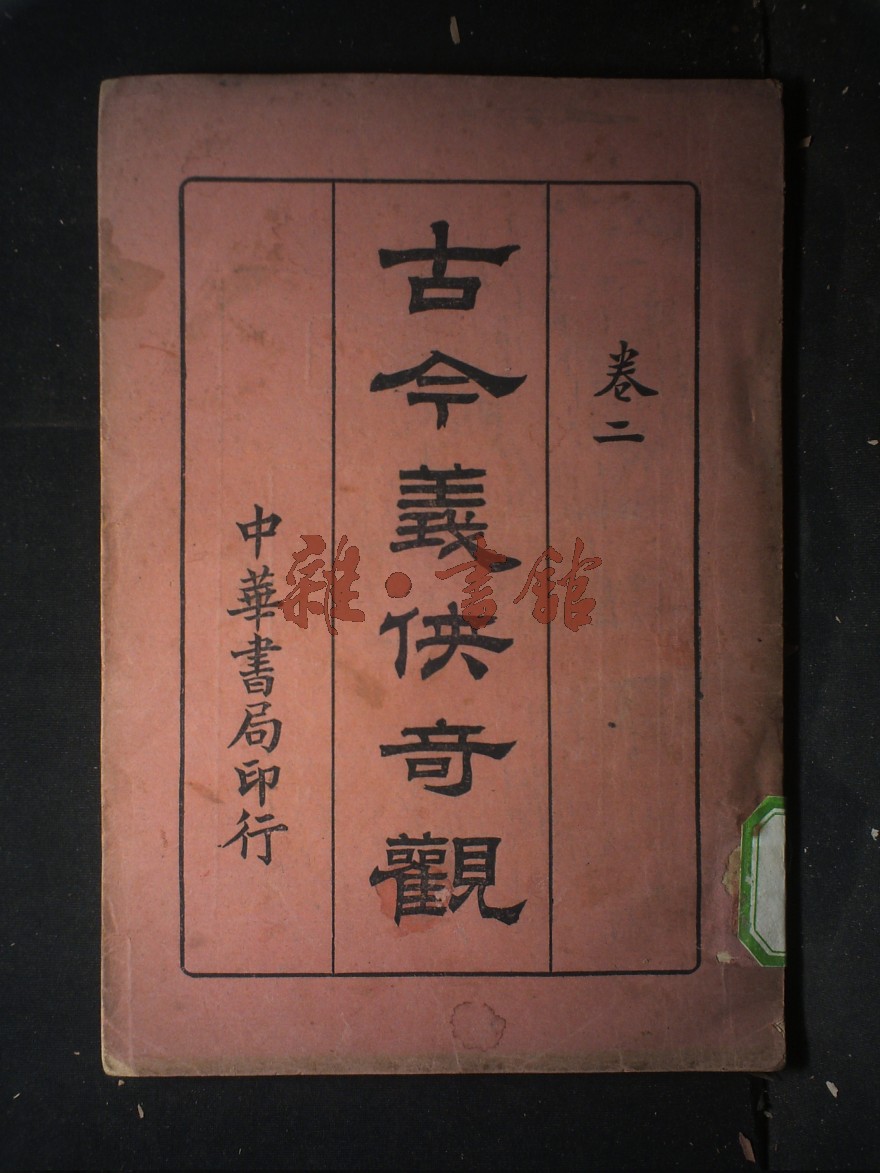 卷二
古今義俠奇觀
中華書局印行
雜·書館